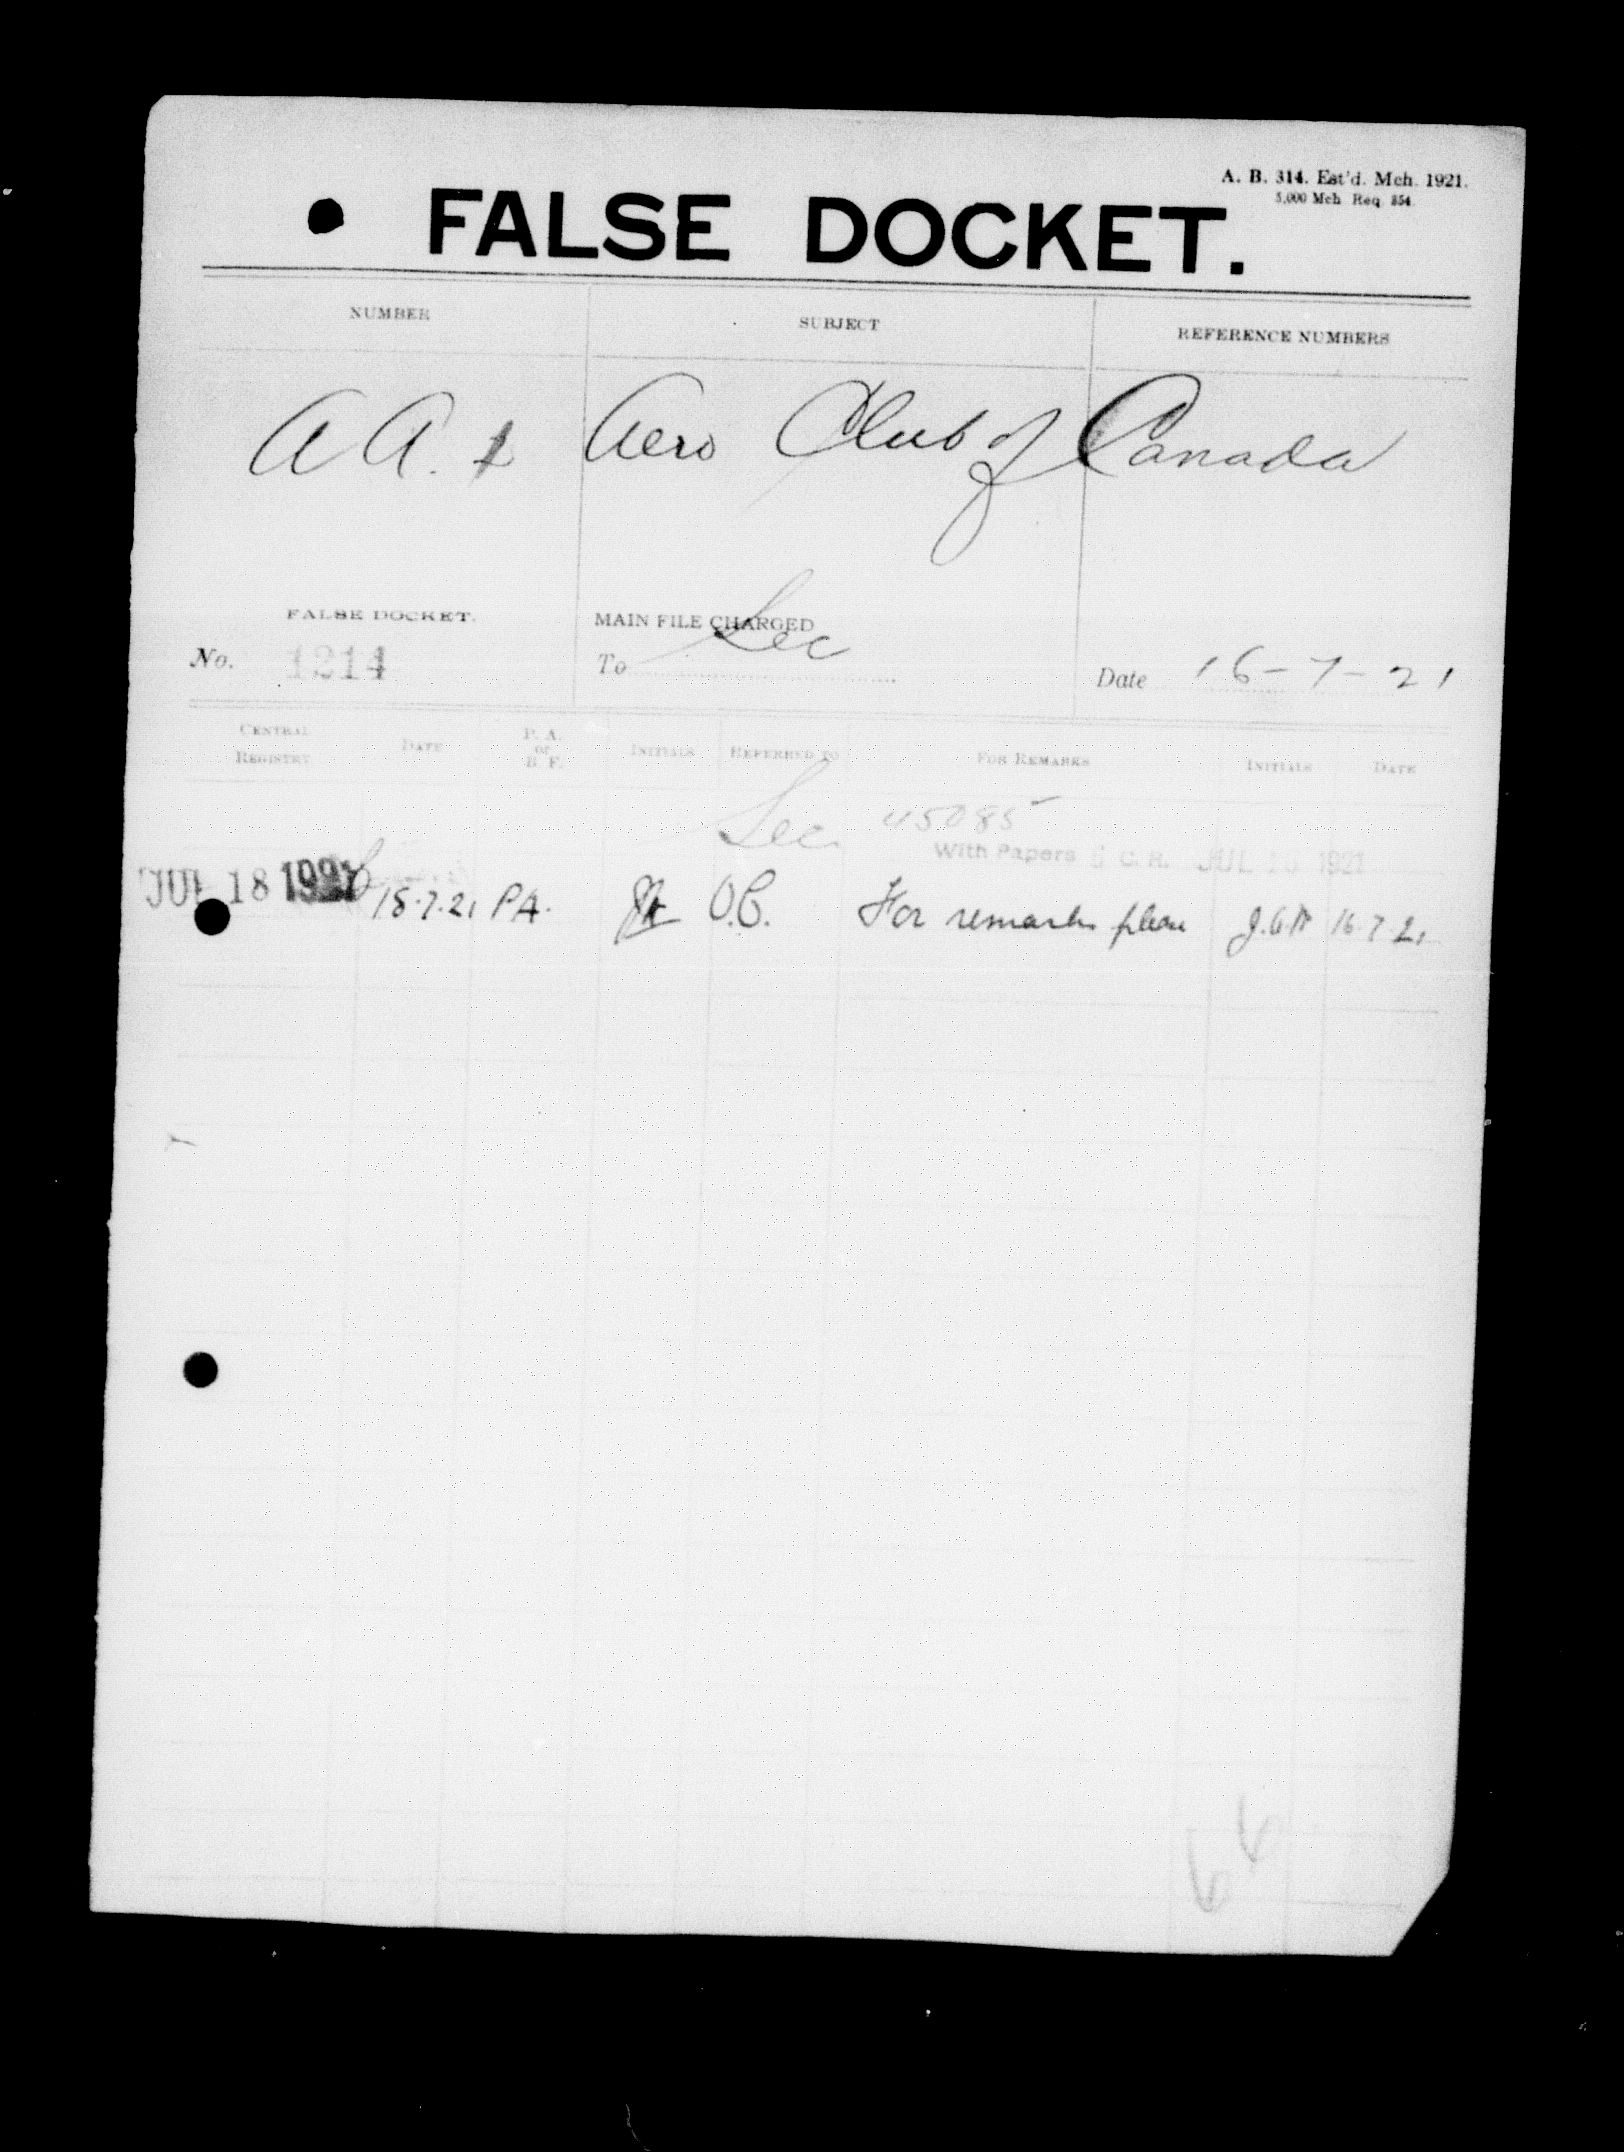 A. B. 314. Est'd. Mch. 1921.
5,000 Mch. Req. 354.
FALSE DOCKET.
NUMBER SUBJECT REFERENCE NUMBERS
A A. Aero Club of Canada
FALSE DOCKET. MAIN FILE CHARGED
Sec
No. 1214 To Date 16-7-21
CENTRAL REGISTRY DATE P. A. or B. F. INITIALS REFERRED TO FOR REMARKS INITIALS DATE
Sec. 45085
With Papers C. R. JUL 1921
JUL 18 1921 18.7.21 P.A. O.C. For remarks please 16.7.21